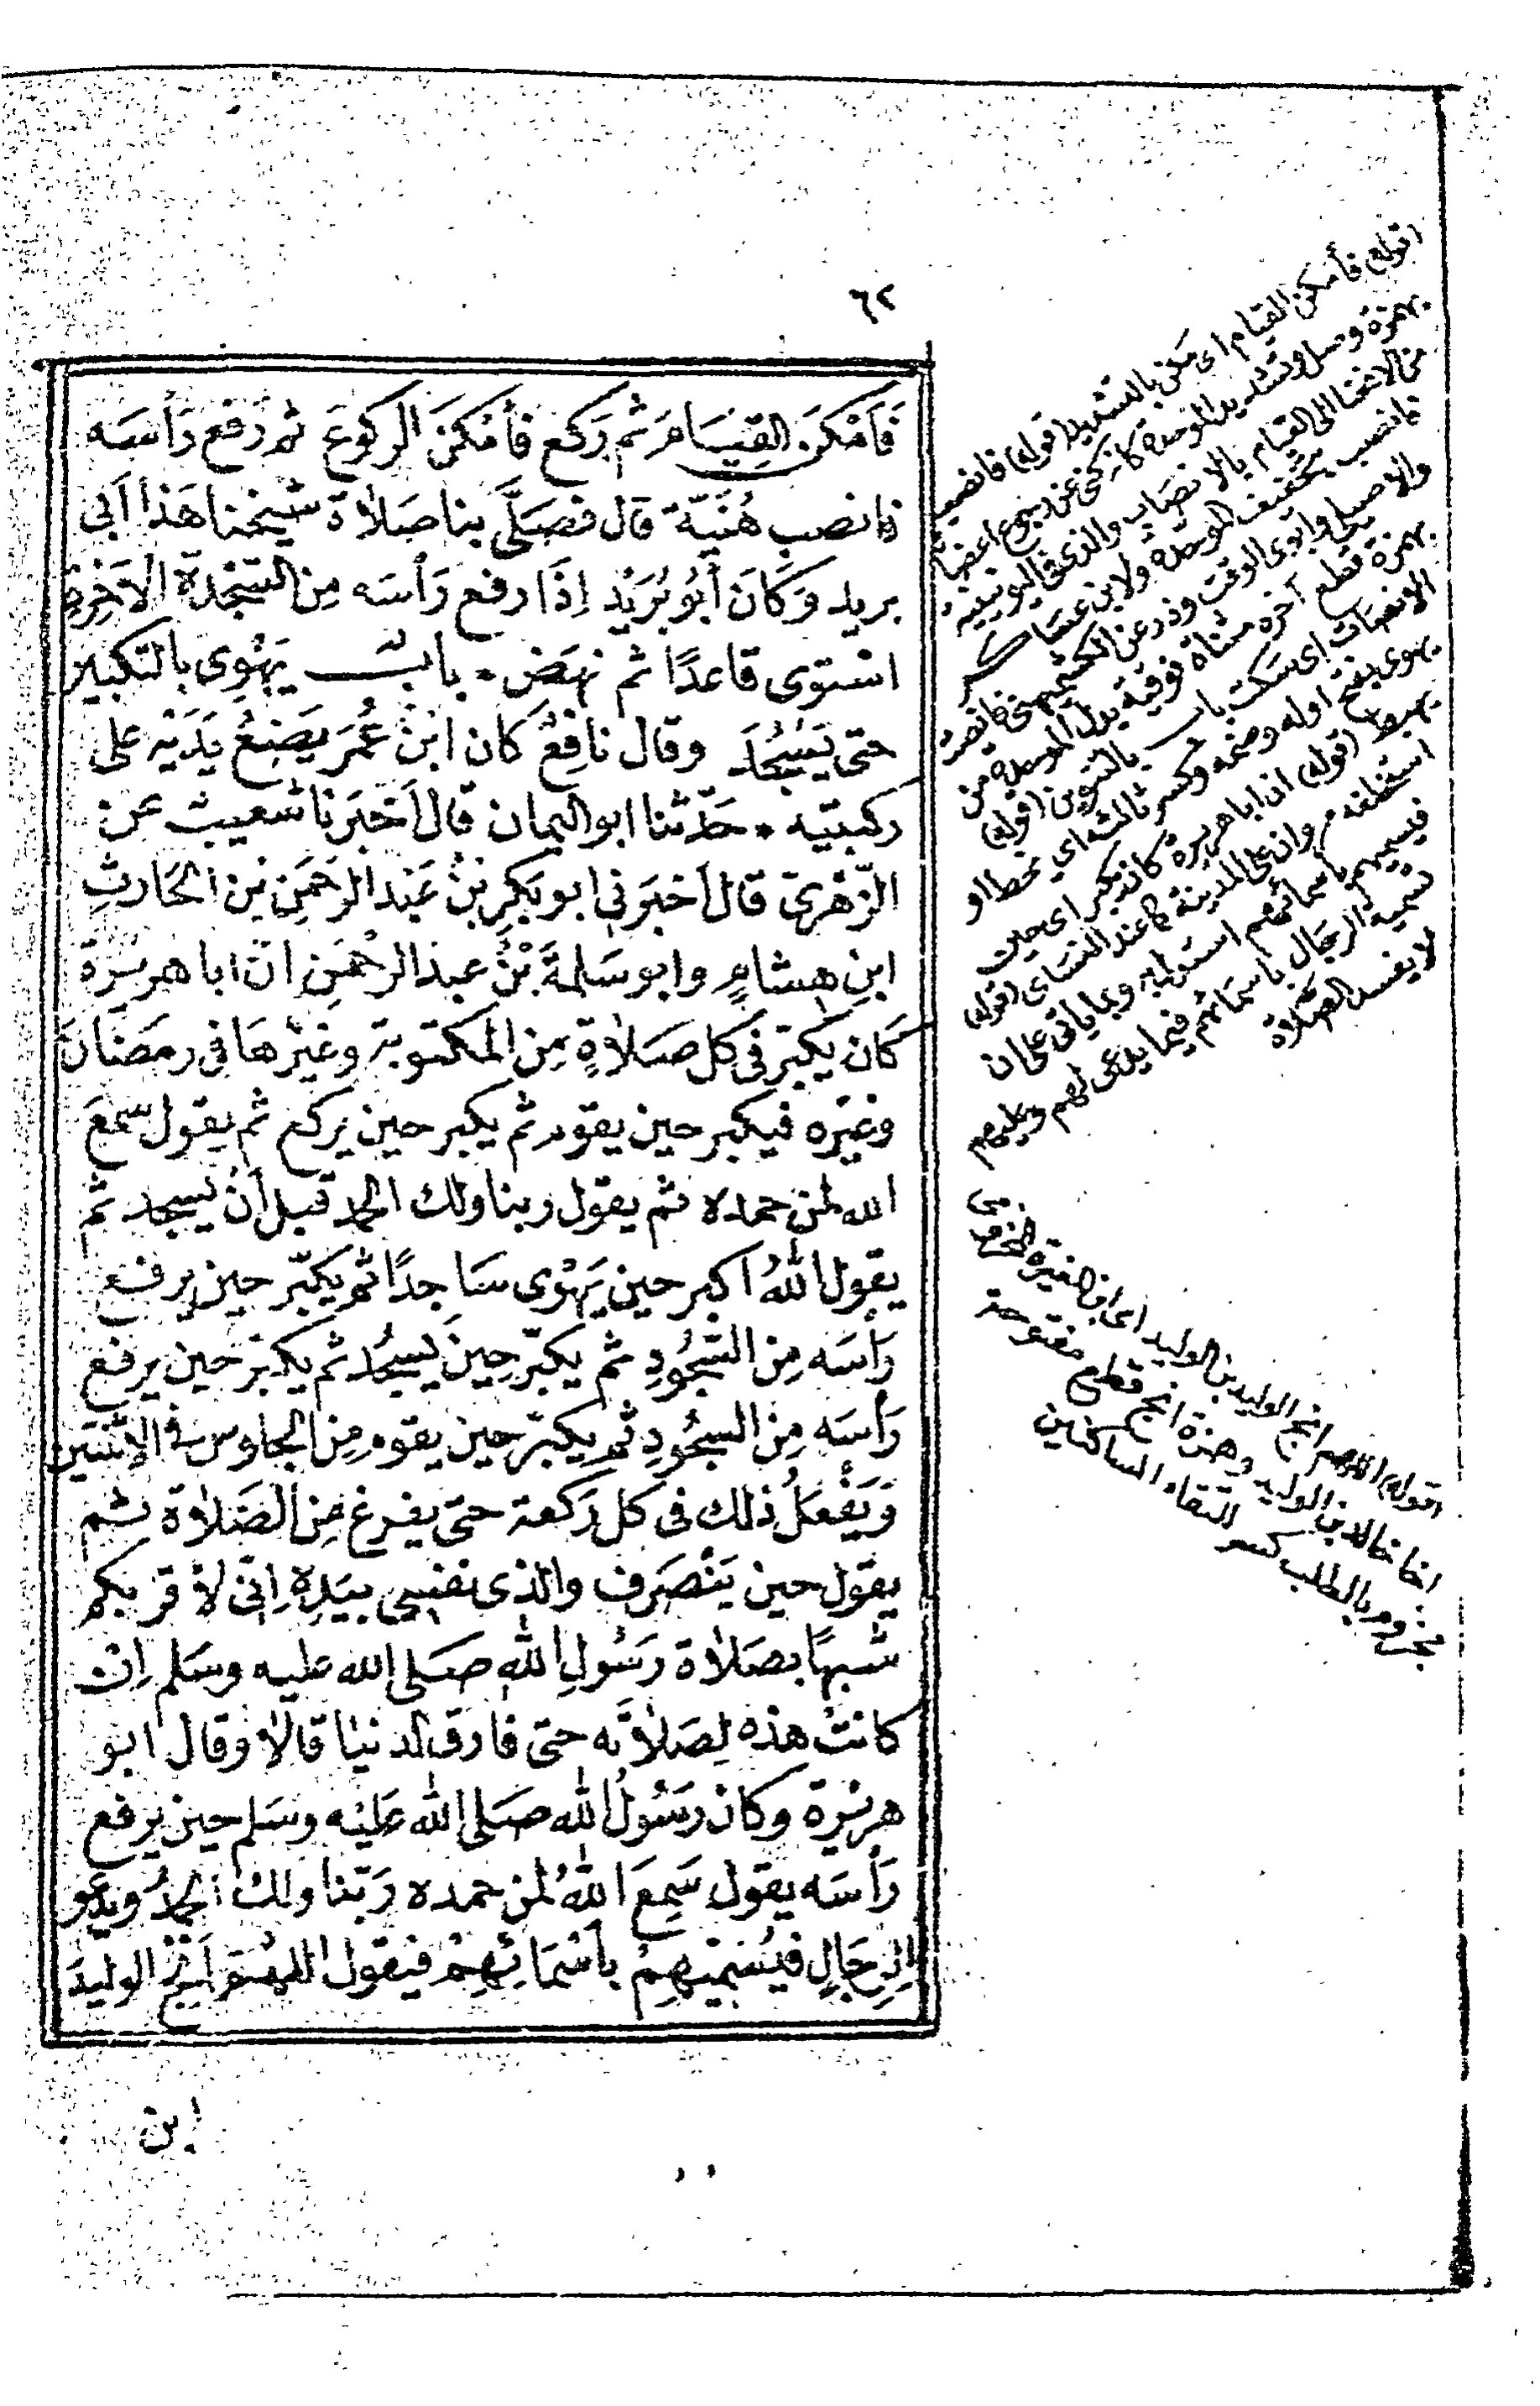 ٦٢
فَأَمْكَنَ القِيَامَ ثم رَكع فأَمْكَنَ الركوعَ ثم رَفع رَأسَه
فانصب هُنَيَّة قال فصَلَّى بنا صَلاة شيخنا هَذا أبى
بريد وَكَانَ أَبُو بُرَيْدٍ إِذَا رفع رَأسَه مِنَ السَّجْدَة الآخِرَةِ
اسْتوى قاعدًا ثم نهَض * بابٌ يَهْوِى بالتكبير
حتى يَسْجُدَ وقال نافِعٌ كان ابنُ عُمَرَ يَضَعُ يَدَيْه على
ركبتيه * حَدّثنا ابو اليمان قال أخبَرَنا شعيبٌ عن
الزّهْرِىّ قال أخبَرَنى ابو بَكرِ بنُ عَبْد الرحمَنِ بن الحَارثِ
ابنِ هِشامٍ وابو سَلمةَ بْنُ عبد الرحْمَنِ انّ ابا هريرة
كان يكبّر فى كل صَلاةٍ مِن المكتوبة وغيْرهَا فى رمَضَان
وغيْرِه فيكبر حين يقوم ثم يكبر حين يركع ثم يقول سمعَ
الله لمن حمده ثم يقول ربنا ولك الحمد قبل أنْ يسجد ثم
يقول اللهُ اكبر حين يَهْوى سَاجدًا ثم يكبّر حين يرفع
رَأسَه مِن السُّجُودِ ثم يكبّر حِينَ يَسجُد ثم يكبّر حين يرفع
رَأسَه مِن السجُودِ ثم يكبّر حين يقوم مِن الجلوس فى الاثنتين
وَيَفْعَلُ ذلك فى كل رَكعة حتى يفرغ مِن الصَّلاة ثم
يقول حين يَنْصَرف والذى نفسِى بيَدِهِ إنّى لأقربكم
شبهًا بصَلاة رَسُولِ اللهِ صَلى الله عليه وسَلم إنْ
كانتْ هذه لصَلاتَه حتى فارق الدنيَا قالا وقال ابو
هريْرة وكان رسُولُ الله صَلى الله عَليْه وسَلم حين يرفع
رَأسَه يقول سَمِعَ اللهُ لمن حمده رَبّنا ولك الحمدُ ويدعو
لِرِجَالٍ فيُسَمّيْهِمْ بأسْمَائِهِمْ فيَقول اللهُمّ أنْجِ الوليدَ
ابن
(قوله) فأمكن القيام اى مكن بالتشديد (قوله) فانصب
بهمزة وصل وتشديد الموحدة كانه كنى عن رجوع اعضائه
من الانحنا الى القيام بالانصباب والذى فى اليونينية
فانصب بتخفيف الموحدة ولابن عساكر
والاصيلى وابوى الوقت وذر عن الكشميهنى فانصت
بهمزة قطع آخره مثناة فوقية بدل الموحدة من
الانصات اى سكت باب بالتنوين (قوله)
يهوى بفتح اوله وضمه وكسر ثالثه اى ينحط او
يهبط (قوله) ان ابا هريرة كان يكبر اى حين
استخلفه مروان على المدينة كما عند النسائى (قوله)
فيسميهم باسمائهم استدل به وبما ياتى على ان
تسمية الرجال باسمائهم فيما يدعى لهم وعليهم
لا يفسد الصلاة
(قوله) اللهم انج الوليد بن الوليد اى ابن المغيرة المخزومى
اخا خالد بن الوليد وهمزة انج قطع مفتوحة
مجزوم بالطلب كسر التقاء الساكنين